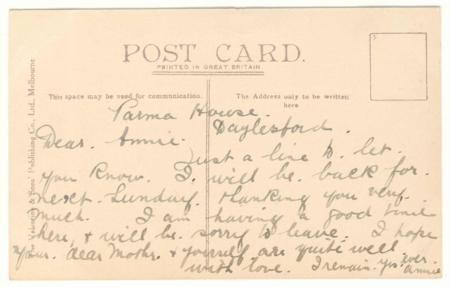 POST CARD.
PRINTED IN GREAT BRITAIN
This space may be used for communication.
The Address only to be written
here
& Sons' Publishing Co., Ltd., Melbourne
Parma House.
Daylesford.
Dear. Annie.
Just a line to. let.
you know. I. will be. back for.
next. Sunday. thanking you very.
much. I am having a good time
here, & will be. sorry to leave. I hope
your. dear Mother. & yourself are quite well
with love. I remain. yrs ever.
Annie